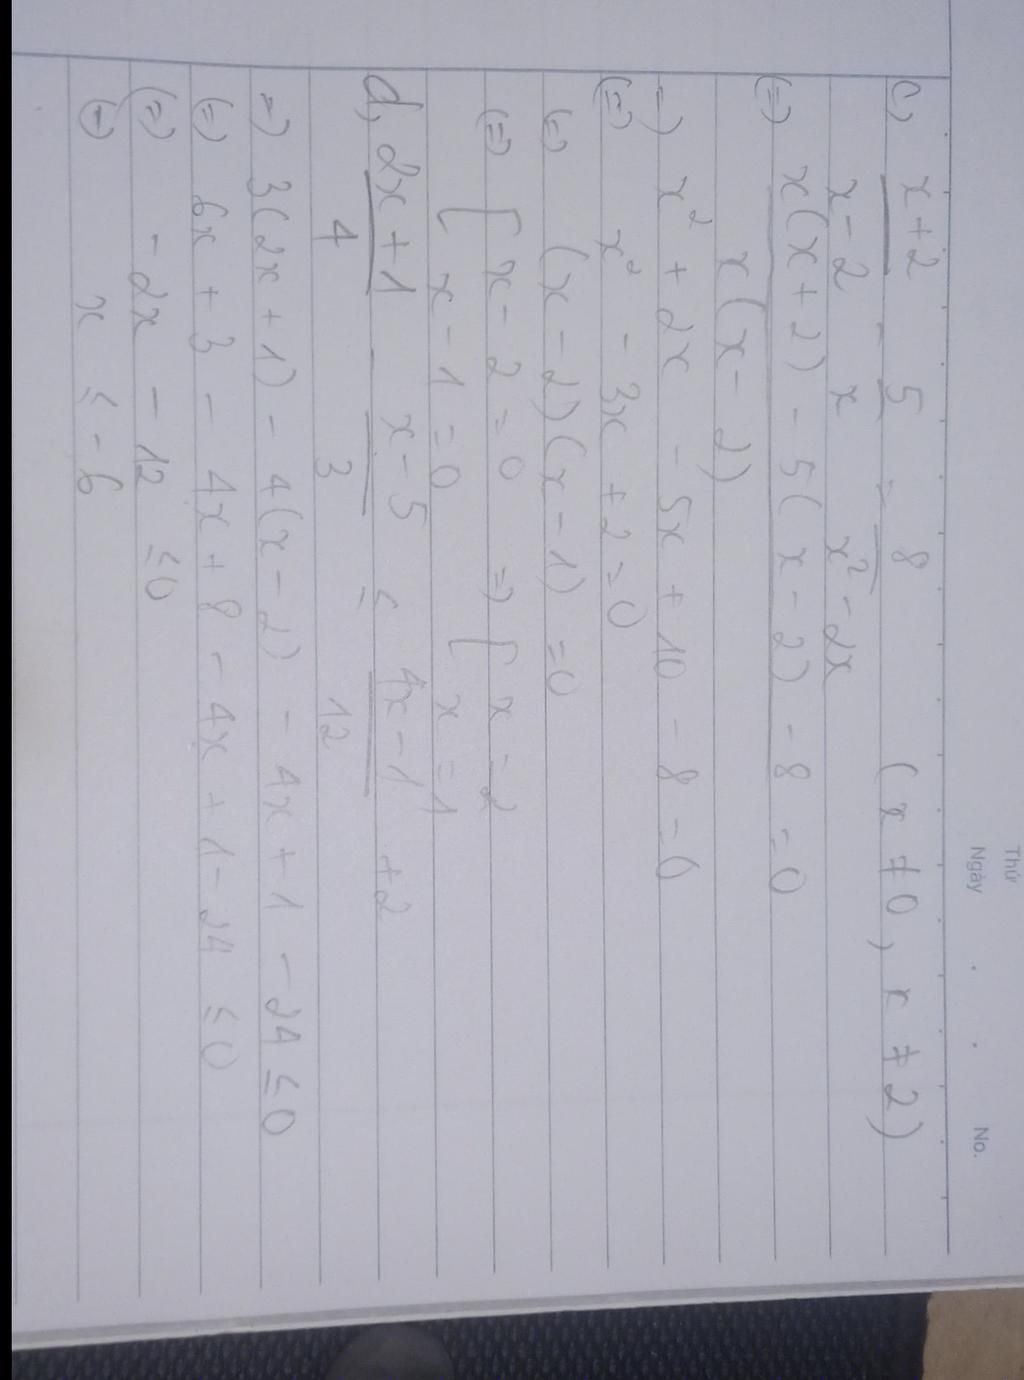 Thứ
Ngày . . No.
c, x+2/x-2 - 5/x = 8/x²-2x (x ≠ 0, x ≠ 2)
(=) x(x+2) - 5(x-2) - 8 = 0
x(x-2)
=) x² + 2x - 5x + 10 - 8 = 0
(=) x² - 3x + 2 = 0
(=) (x-2)(x-1) = 0
(=) [ x-2 = 0 =) [ x = 2
x-1 = 0 x = 1
d, 2x+1/4 - x-5/3 ≤ 4x-1/12 + 2
=) 3(2x+1) - 4(x-2) - 4x + 1 - 24 ≤ 0
(=) 6x + 3 - 4x + 8 - 4x + 1 - 24 ≤ 0
(=) -2x - 12 ≤ 0
(=) x ≤ -6